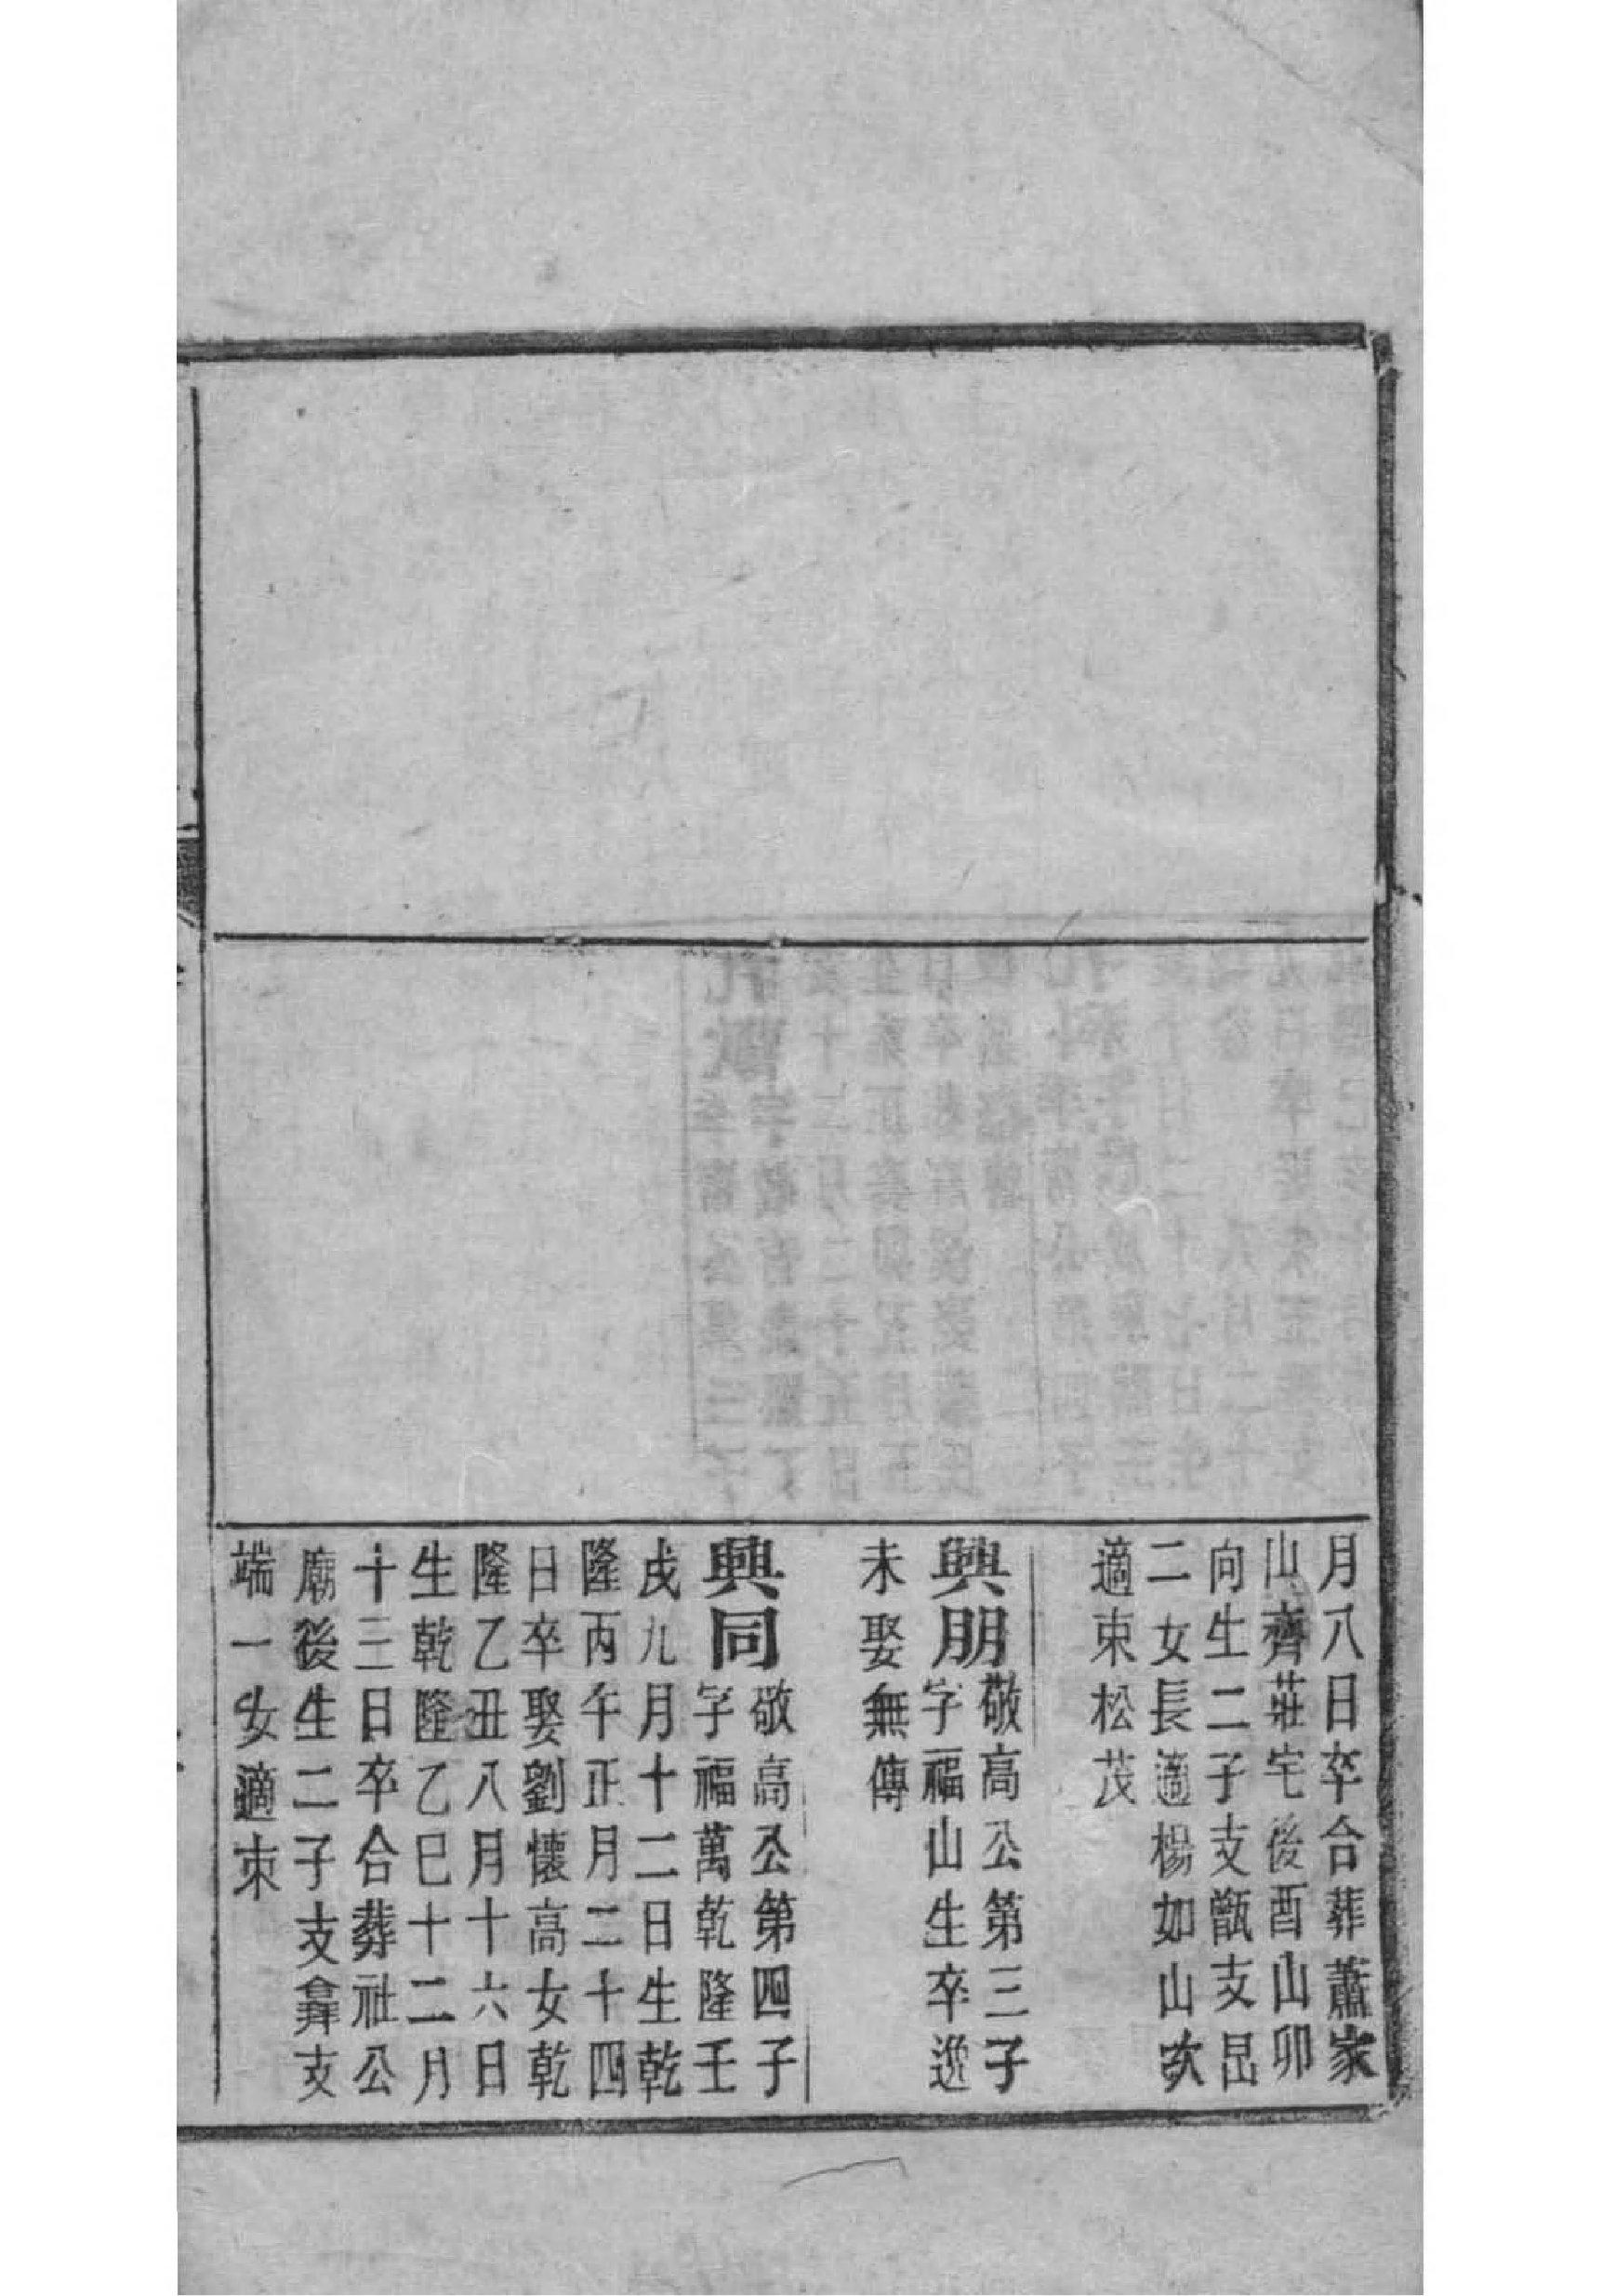 月八日卒合葬蕭家
山齊莊宅後酉山卯
向生二子支甑支昆
二女長適楊如山次
適束松茂
興朋敬高公第三子
字福山生卒逸
未娶無傳
興同敬高公第四子
字福萬乾隆壬
戌九月十二日生乾
隆丙午正月二十四
日卒娶劉懷高女乾
隆乙丑八月十六日
生乾隆乙巳十二月
十三日卒合葬社公
廟後生二子支彛支
端一女適束